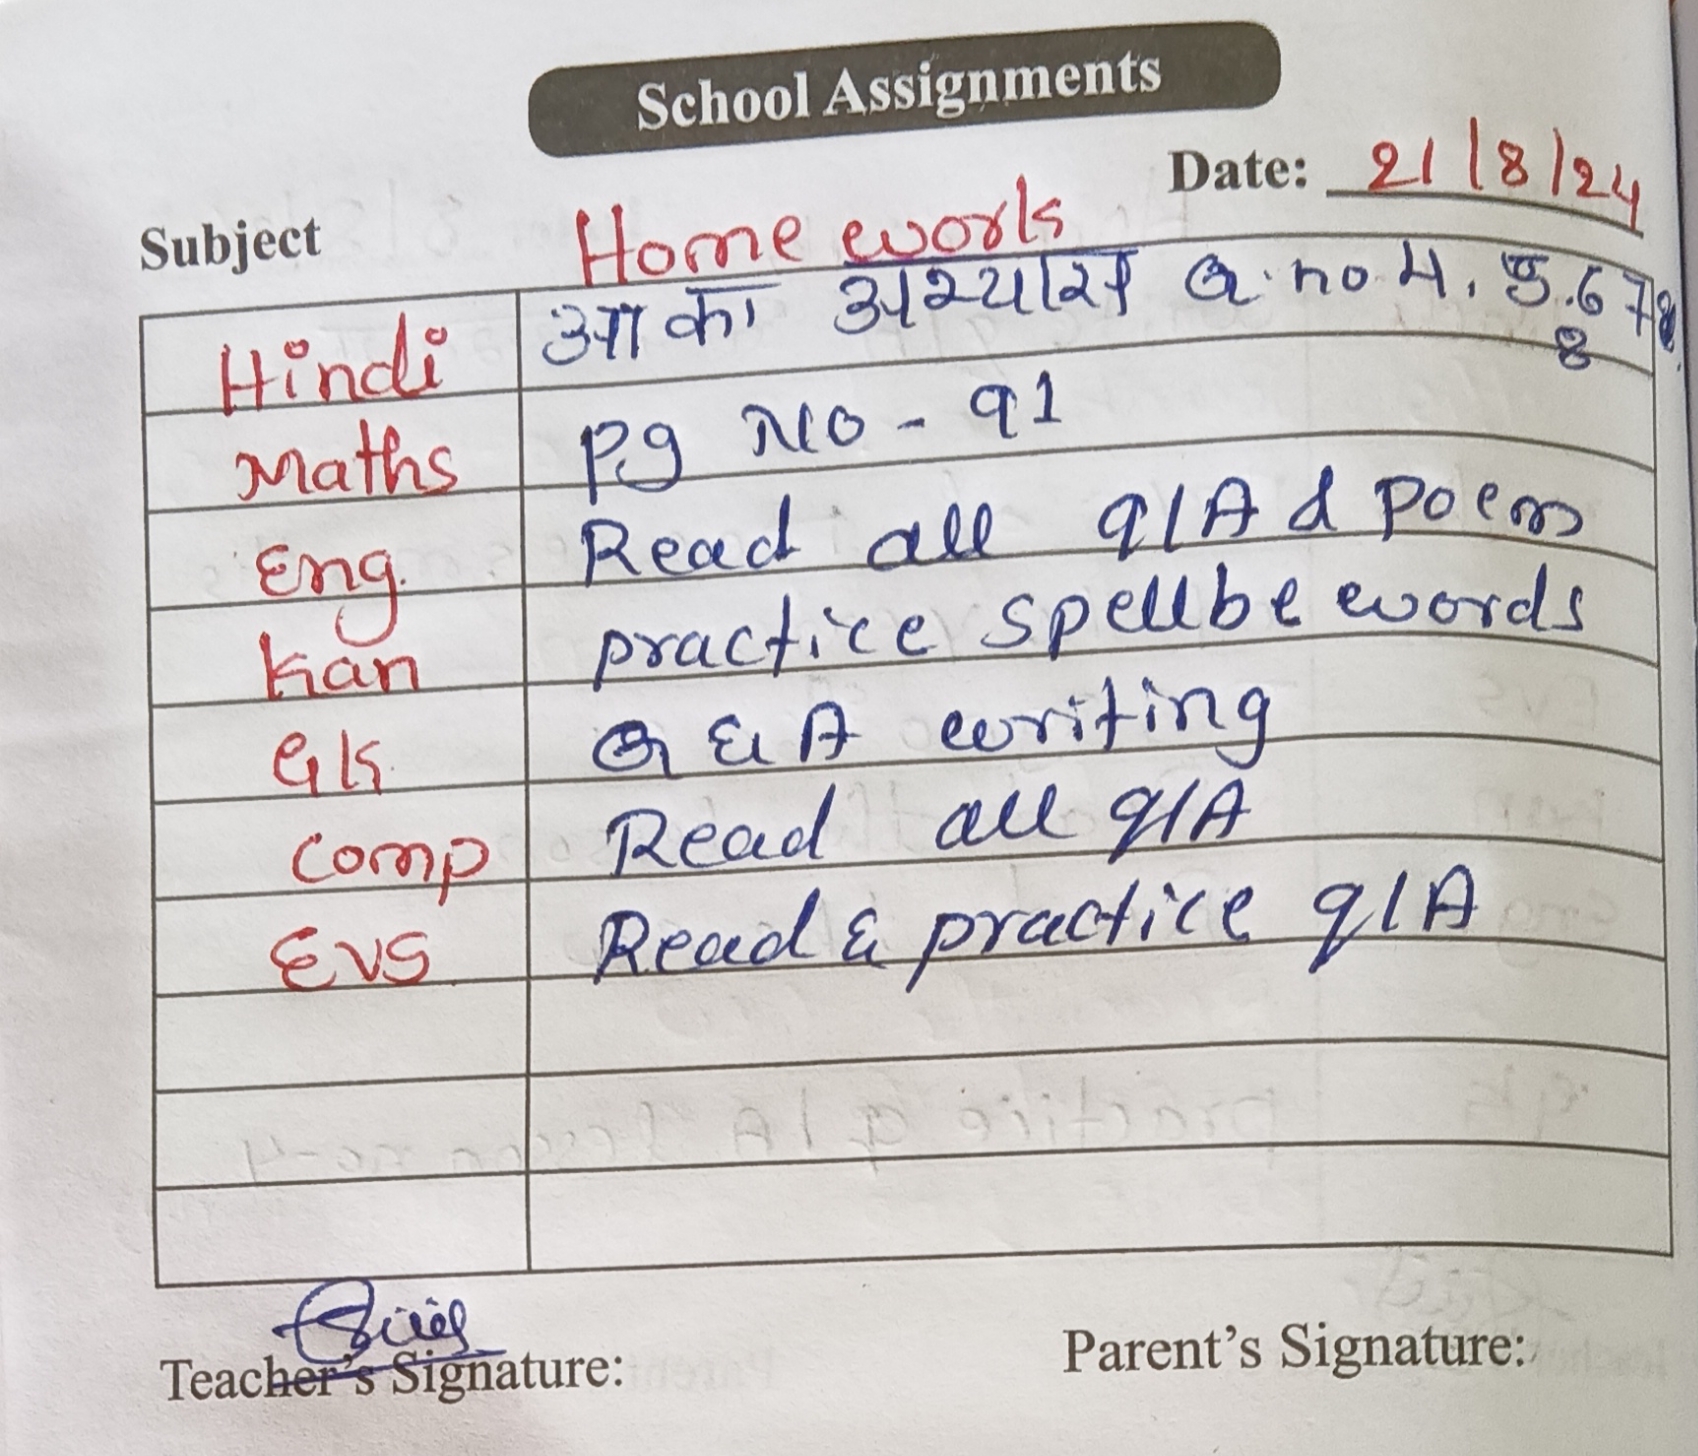 School Assignments
Date: 21/8/24
Subject Home work
Hindi आ का अभ्यास Q. no. 4, 5. 6 7
8
Maths Pg No - 91
Eng. Read all q/A & Poem
Kan practice spellbe words
GK. Q & A writing
Comp Read all q/A
EVS Read & practice q/A
Teacher's Signature: Parent's Signature: